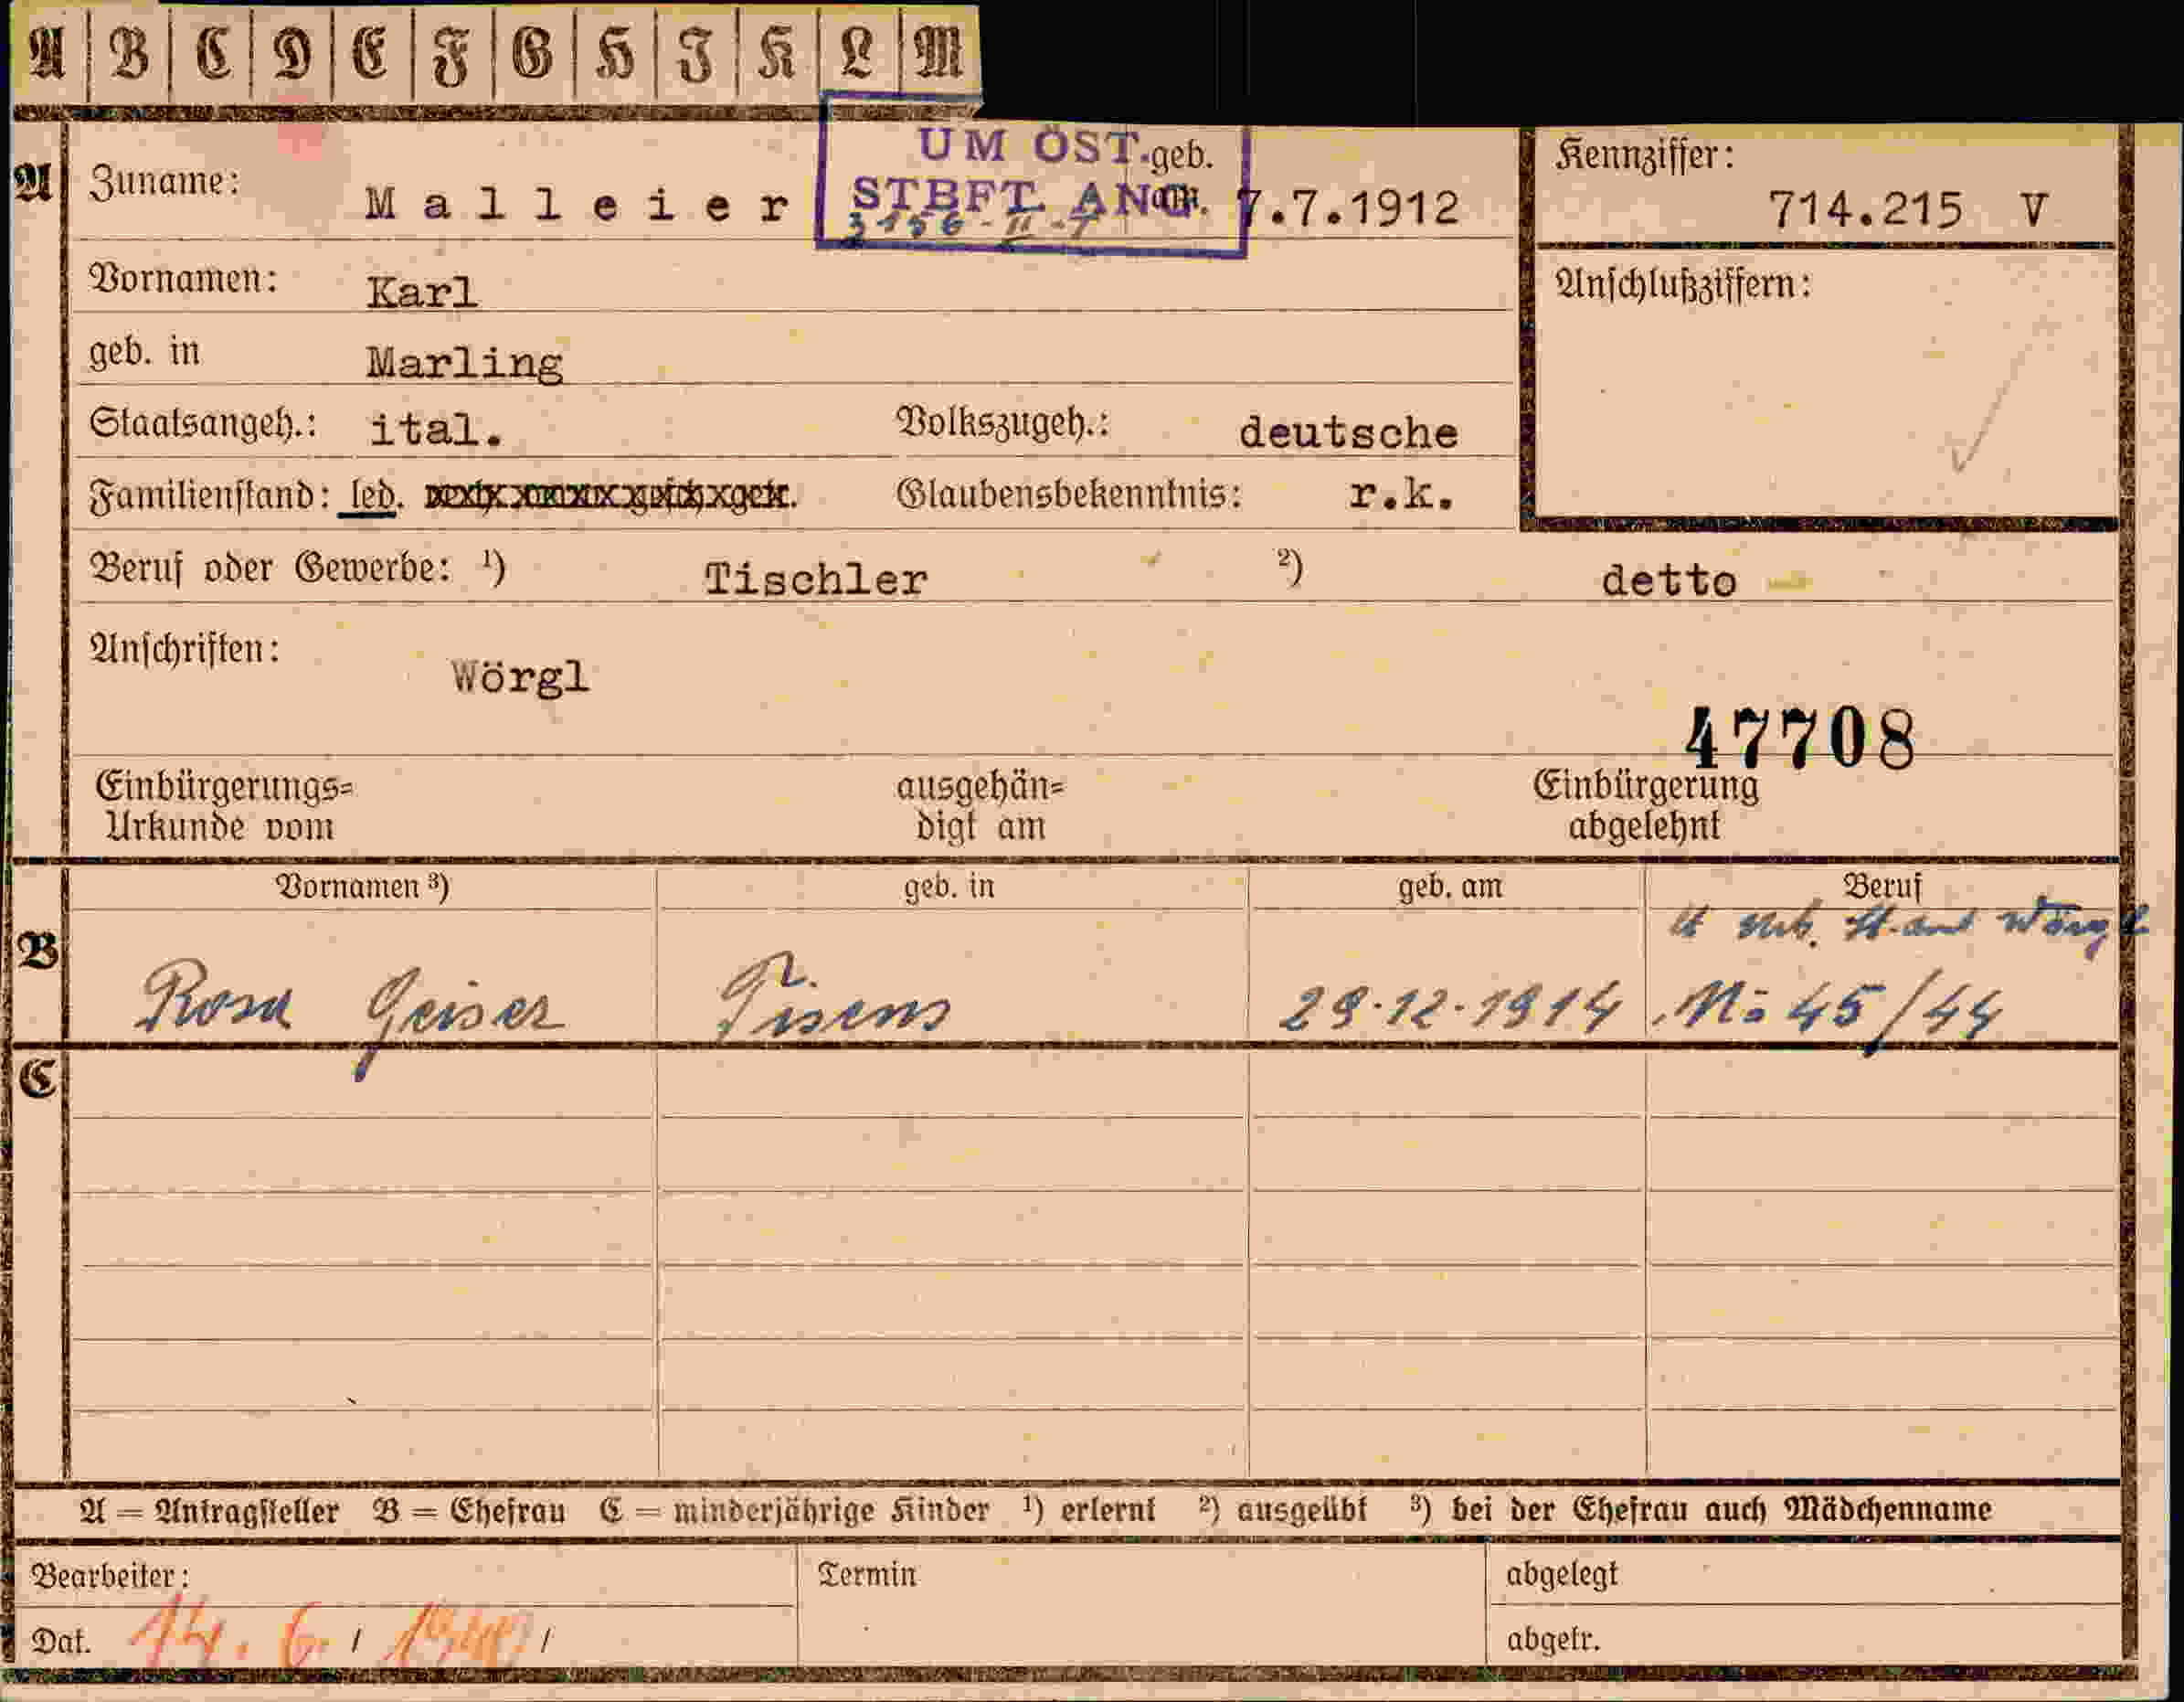 A B C D E F G H I K L M
UM ÖST.
STBFT. ANG.
3156-II-7
A
Zuname: Malleier geb. am 7.7.1912
Kennziffer: 714.215 V
Vornamen: Karl
Anschlußziffern:
geb. in Marling
Staatsangeh.: ital. Volkszugeh.: deutsche
Familienstand: led. Glaubensbekenntnis: r.k.
Beruf oder Gewerbe: ¹) Tischler ²) detto
Anschriften: Wörgl
47708
Einbürgerungs= ausgehän= Einbürgerung
Urkunde vom digt am abgelehnt
Vornamen ³) geb. in geb. am Beruf
Wörgl
B Rosa Geiser Tisens 29.12.1914 No 45/44
C
A = Antragsteller B = Ehefrau C = minderjährige Kinder ¹) erlernt ²) ausgeübt ³) bei der Ehefrau auch Mädchenname
Bearbeiter: Termin abgelegt
Dat. 14. 6. / / abgetr.